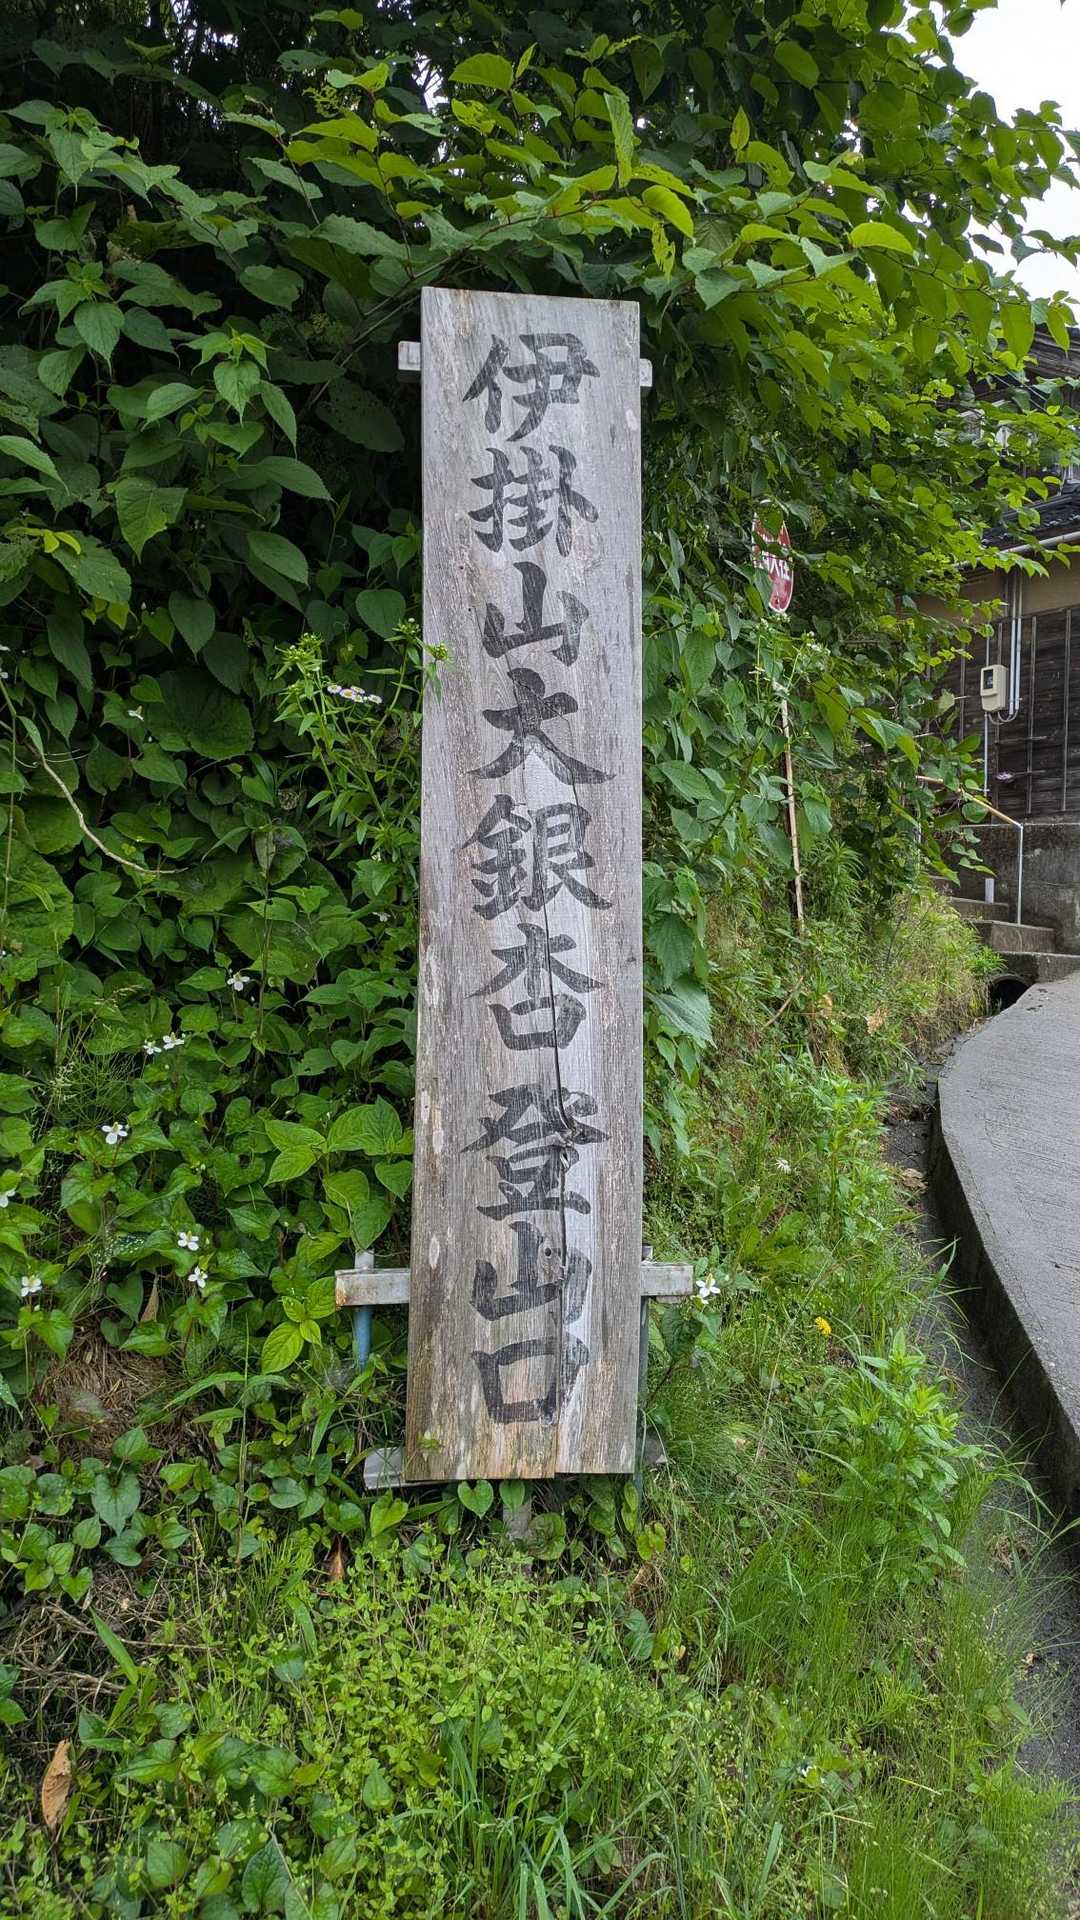 伊掛山大銀杏登山口